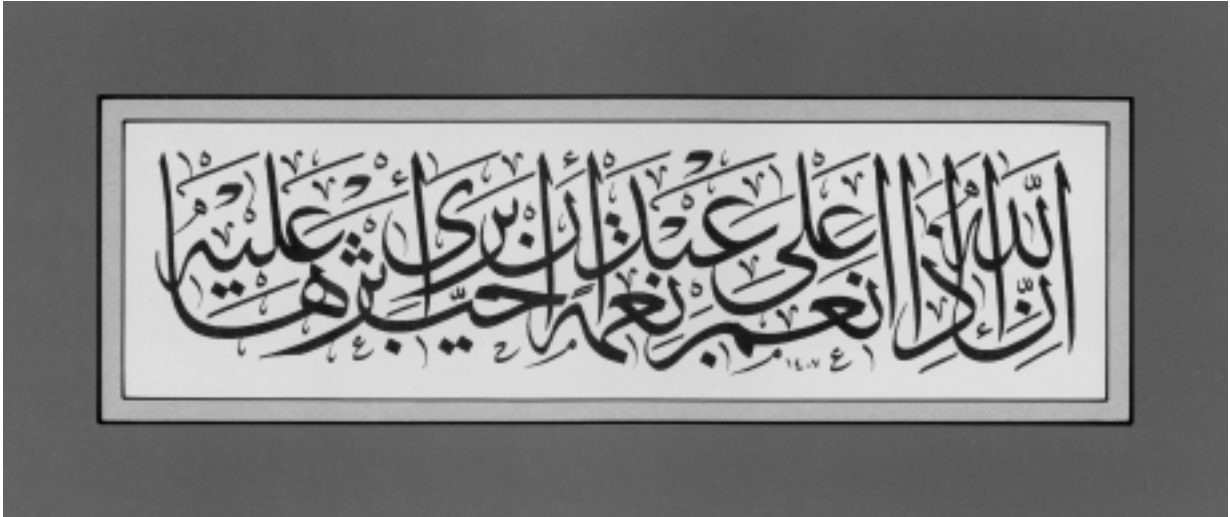 إنّ الله إذا أنعم على عبد نعمة أحبّ أن يرى أثرها عليه
١٤٠٧